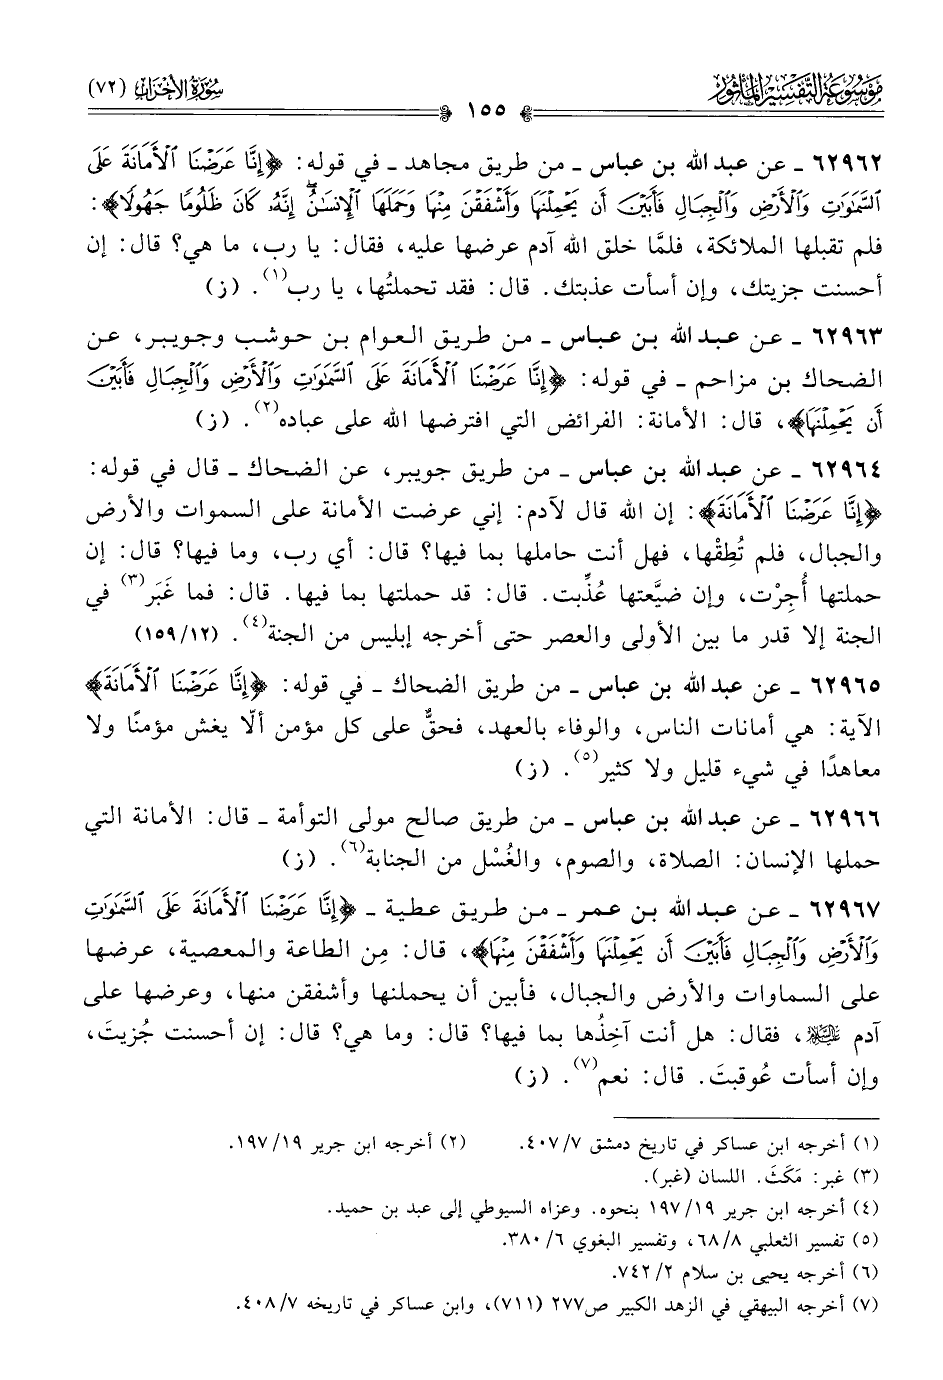 مَوْسُوعَةُ التَّفْسِيرِ المَأْثُور
سُورَةُ الأَحْزَاب (٧٢)
١٥٥
٦٢٩٦٢ ـ عن عبد الله بن عباس ـ من طريق مجاهد ـ في قوله: ﴿إِنَّا عَرَضْنَا ٱلْأَمَانَةَ عَلَى
ٱلسَّمَٰوَٰتِ وَٱلْأَرْضِ وَٱلْجِبَالِ فَأَبَيْنَ أَن يَحْمِلْنَهَا وَأَشْفَقْنَ مِنْهَا وَحَمَلَهَا ٱلْإِنسَٰنُۖ إِنَّهُۥ كَانَ ظَلُومًا جَهُولًا﴾:
فلم تقبلها الملائكة، فلمَّا خلق الله آدم عرضها عليه، فقال: يا رب، ما هي؟ قال: إن
أحسنت جزيتك، وإن أسأت عذبتك. قال: فقد تحملتُها، يا رب(١). (ز)
٦٢٩٦٣ ـ عن عبد الله بن عباس ـ من طريق العوام بن حوشب وجويبر، عن
الضحاك بن مزاحم ـ في قوله: ﴿إِنَّا عَرَضْنَا ٱلْأَمَانَةَ عَلَى ٱلسَّمَٰوَٰتِ وَٱلْأَرْضِ وَٱلْجِبَالِ فَأَبَيْنَ
أَن يَحْمِلْنَهَا﴾، قال: الأمانة: الفرائض التي افترضها الله على عباده(٢). (ز)
٦٢٩٦٤ ـ عن عبد الله بن عباس ـ من طريق جويبر، عن الضحاك ـ قال في قوله:
﴿إِنَّا عَرَضْنَا ٱلْأَمَانَةَ﴾: إن الله قال لآدم: إني عرضت الأمانة على السموات والأرض
والجبال، فلم تُطِقْها، فهل أنت حاملها بما فيها؟ قال: أي رب، وما فيها؟ قال: إن
حملتها أُجِرْت، وإن ضيَّعتها عُذِّبت. قال: قد حملتها بما فيها. قال: فما غَبَر(٣) في
الجنة إلا قدر ما بين الأولى والعصر حتى أخرجه إبليس من الجنة(٤). (١٥٩/١٢)
٦٢٩٦٥ ـ عن عبد الله بن عباس ـ من طريق الضحاك ـ في قوله: ﴿إِنَّا عَرَضْنَا ٱلْأَمَانَةَ﴾
الآية: هي أمانات الناس، والوفاء بالعهد، فحقٌّ على كل مؤمن ألّا يغش مؤمنًا ولا
معاهدًا في شيء قليل ولا كثير(٥). (ز)
٦٢٩٦٦ ـ عن عبد الله بن عباس ـ من طريق صالح مولى التوأمة ـ قال: الأمانة التي
حملها الإنسان: الصلاة، والصوم، والغُسْل من الجنابة(٦). (ز)
٦٢٩٦٧ ـ عن عبد الله بن عمر ـ من طريق عطية ـ ﴿إِنَّا عَرَضْنَا ٱلْأَمَانَةَ عَلَى ٱلسَّمَٰوَٰتِ
وَٱلْأَرْضِ وَٱلْجِبَالِ فَأَبَيْنَ أَن يَحْمِلْنَهَا وَأَشْفَقْنَ مِنْهَا﴾، قال: مِن الطاعة والمعصية، عرضها
على السماوات والأرض والجبال، فأبين أن يحملنها وأشفقن منها، وعرضها على
آدم عليه السلام، فقال: هل أنت آخِذُها بما فيها؟ قال: وما هي؟ قال: إن أحسنت جُزيتَ،
وإن أسأت عُوقبتَ. قال: نعم(٧). (ز)
(١) أخرجه ابن عساكر في تاريخ دمشق ٤٠٧/٧. (٢) أخرجه ابن جرير ١٩٧/١٩.
(٣) غبر: مَكَثَ. اللسان (غبر).
(٤) أخرجه ابن جرير ١٩٧/١٩ بنحوه. وعزاه السيوطي إلى عبد بن حميد.
(٥) تفسير الثعلبي ٦٨/٨، وتفسير البغوي ٣٨٠/٦.
(٦) أخرجه يحيى بن سلام ٧٤٢/٢.
(٧) أخرجه البيهقي في الزهد الكبير ص٢٧٧ (٧١١)، وابن عساكر في تاريخه ٤٠٨/٧.